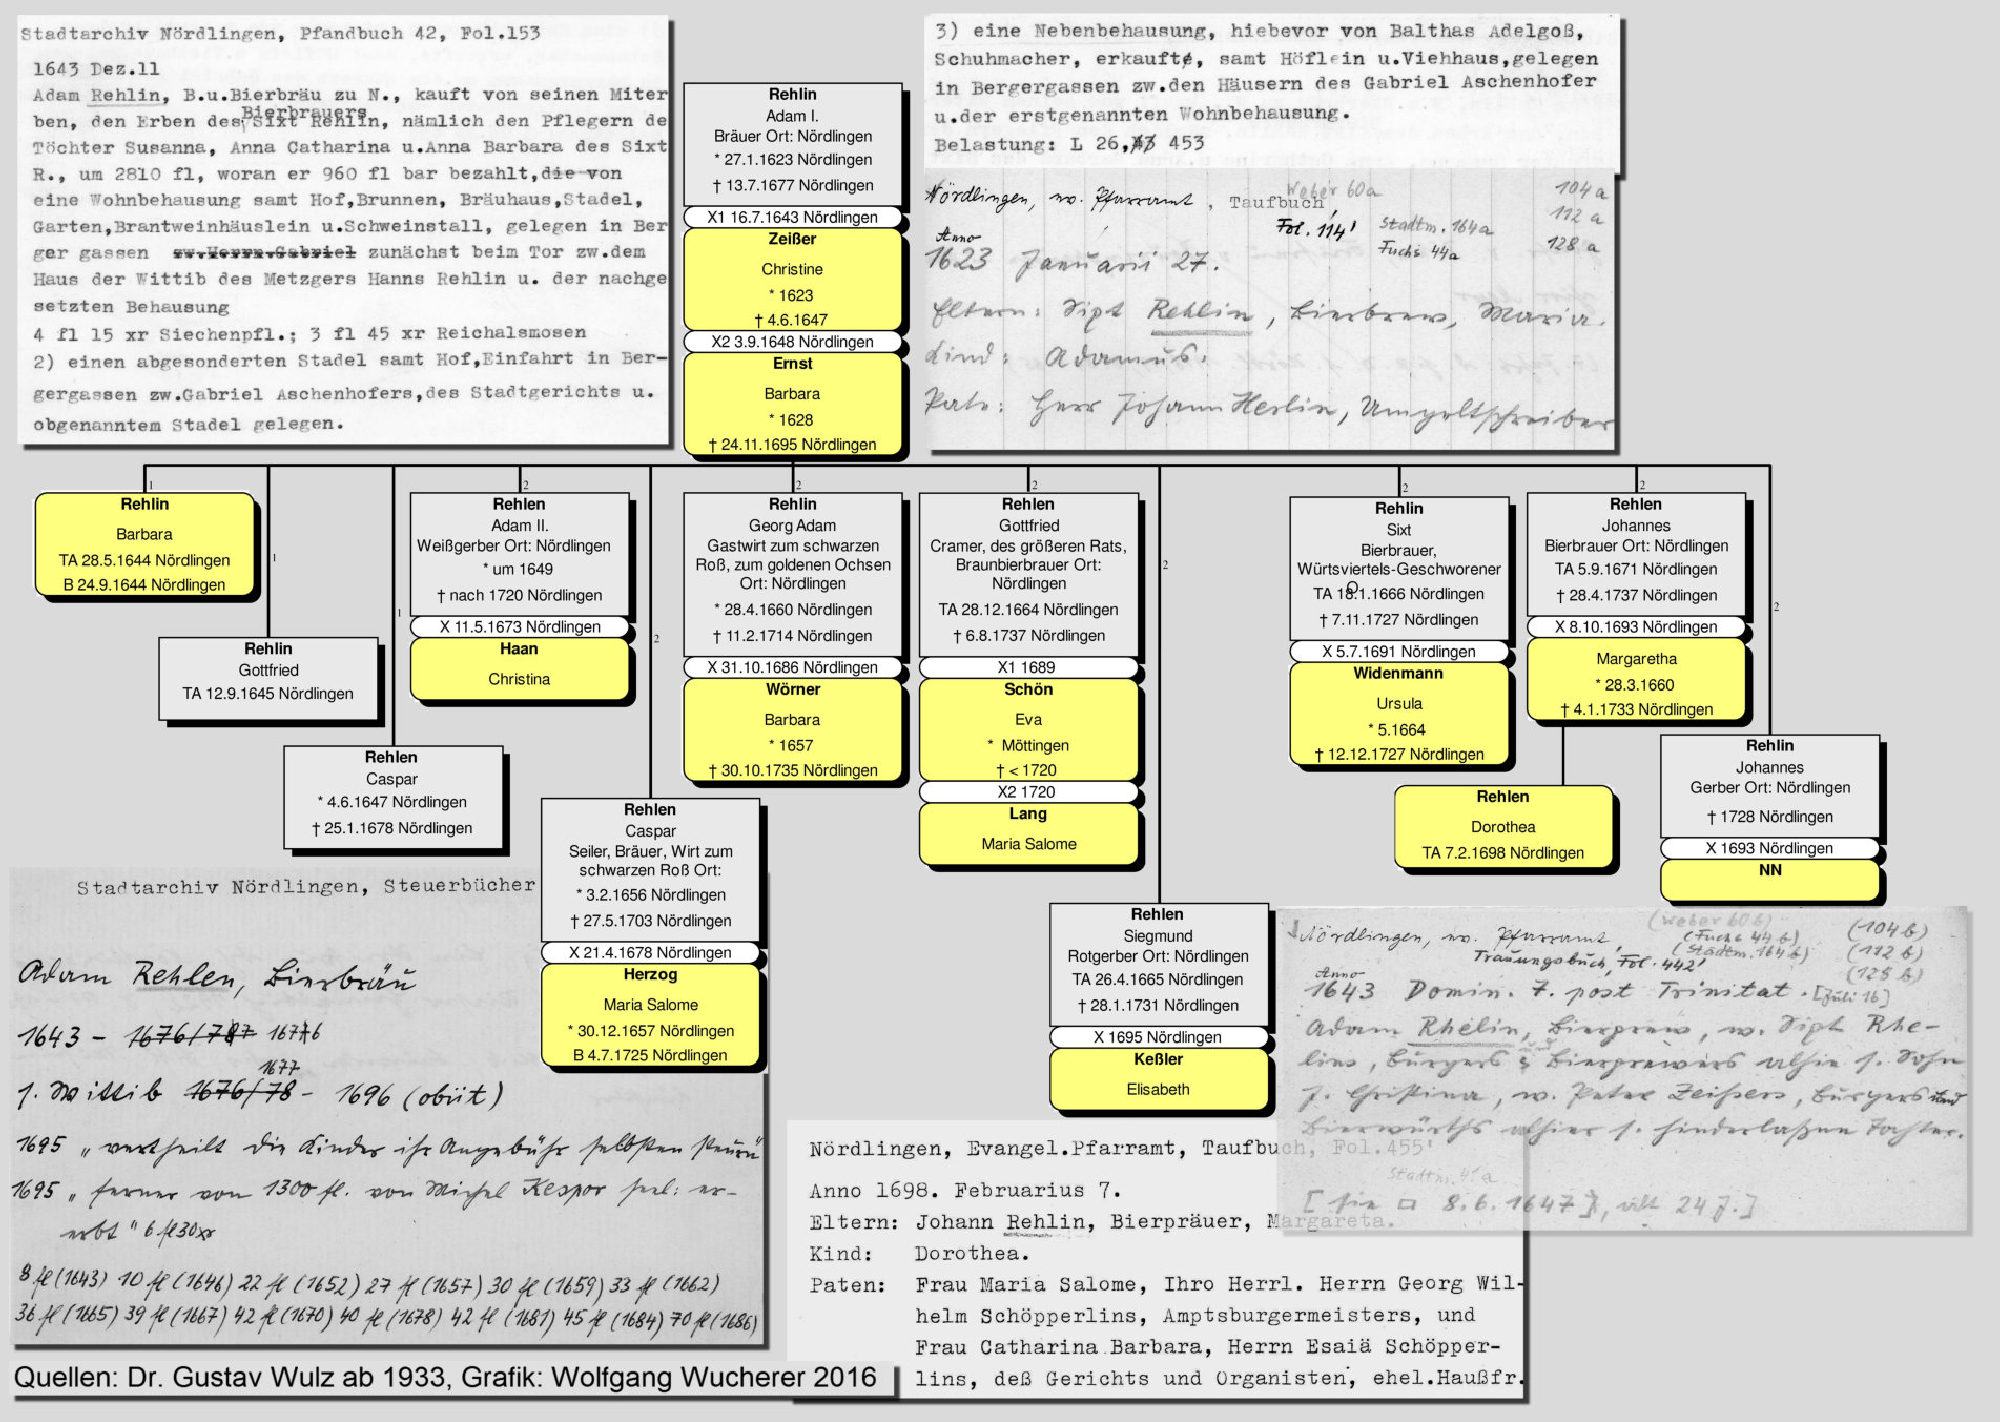 Stadtarchiv Nördlingen, Pfandbuch 42, Fol.153
1643 Dez.11
Adam Rehlin, B.u.Bierbräu zu N., kauft von seinen Miter
Bierbrauers
ben, den Erben des Sixt Rehlin, nämlich den Pflegern de
Töchter Susanna, Anna Catharina u.Anna Barbara des Sixt
R., um 2810 fl, woran er 960 fl bar bezahlt,die von
eine Wohnbehausung samt Hof,Brunnen, Bräuhaus,Stadel,
Garten,Brantweinhäuslein u.Schweinstall, gelegen in Ber
ger gassen zw.Herrn Gabriel zunächst beim Tor zw.dem
Haus der Wittib des Metzgers Hanns Rehlin u. der nachge
setzten Behausung
4 fl 15 xr Siechenpfl.; 3 fl 45 xr Reichalmosen
2) einen abgesonderten Stadel samt Hof,Einfahrt in Ber-
gergassen zw.Gabriel Aschenhofers,des Stadtgerichts u.
obgenanntem Stadel gelegen.
Rehlin
Adam I.
Bräuer Ort: Nördlingen
* 27.1.1623 Nördlingen
† 13.7.1677 Nördlingen
X1 16.7.1643 Nördlingen
Zeißer
Christine
* 1623
† 4.6.1647
X2 3.9.1648 Nördlingen
Ernst
Barbara
* 1628
† 24.11.1695 Nördlingen
3) eine Nebenbehausung, hiebevor von Balthas Adelgoß,
Schuhmacher, erkaufte, samt Höflein u.Viehhaus,gelegen
in Bergergassen zw.den Häusern des Gabriel Aschenhofer
u.der erstgenannten Wohnbehausung.
Belastung: L 26, 453
Nördlingen, ev. Pfarramt, Taufbuch,
Weber 60a
104 a
Fol. 114'
Stadtm. 164a
112 a
Fuchs 44a
128 a
Anno
1623 Januarii 27.
Eltern: Sixt Rehlin, Bierbrew, Maria.
Kind: Adamus.
Pate: Herr Johann Herlin, Umgeltschreiber
1
Rehlin
Barbara
TA 28.5.1644 Nördlingen
B 24.9.1644 Nördlingen
1
Rehlin
Gottfried
TA 12.9.1645 Nördlingen
1
Rehlen
Caspar
* 4.6.1647 Nördlingen
† 25.1.1678 Nördlingen
2
Rehlen
Adam II.
Weißgerber Ort: Nördlingen
* um 1649
† nach 1720 Nördlingen
X 11.5.1673 Nördlingen
Haan
Christina
2
Rehlen
Caspar
Seiler, Bräuer, Wirt zum
schwarzen Roß Ort:
* 3.2.1656 Nördlingen
† 27.5.1703 Nördlingen
X 21.4.1678 Nördlingen
Herzog
Maria Salome
* 30.12.1657 Nördlingen
B 4.7.1725 Nördlingen
2
Rehlin
Georg Adam
Gastwirt zum schwarzen
Roß, zum goldenen Ochsen
Ort: Nördlingen
* 28.4.1660 Nördlingen
† 11.2.1714 Nördlingen
X 31.10.1686 Nördlingen
Wörner
Barbara
* 1657
† 30.10.1735 Nördlingen
2
Rehlen
Gottfried
Cramer, des größeren Rats,
Braunbierbrauer Ort:
Nördlingen
TA 28.12.1664 Nördlingen
† 6.8.1737 Nördlingen
X1 1689
Schön
Eva
* Möttingen
† < 1720
X2 1720
Lang
Maria Salome
2
Rehlen
Siegmund
Rotgerber Ort: Nördlingen
TA 26.4.1665 Nördlingen
† 28.1.1731 Nördlingen
X 1695 Nördlingen
Keßler
Elisabeth
2
Rehlin
Sixt
Bierbrauer,
Würtsviertels-Geschworener
TA 18.1.1666 Nördlingen
† 7.11.1727 Nördlingen
X 5.7.1691 Nördlingen
Widenmann
Ursula
* 5.1664
† 12.12.1727 Nördlingen
2
Rehlen
Johannes
Bierbrauer Ort: Nördlingen
TA 5.9.1671 Nördlingen
† 28.4.1737 Nördlingen
X 8.10.1693 Nördlingen
Margaretha
* 28.3.1660
† 4.1.1733 Nördlingen
Rehlen
Dorothea
TA 7.2.1698 Nördlingen
2
Rehlin
Johannes
Gerber Ort: Nördlingen
† 1728 Nördlingen
X 1693 Nördlingen
NN
Stadtarchiv Nördlingen, Steuerbücher
Adam Rehlen, Bierbräu
1643 - 1676/78 1676
1677
s. Wittib 1676/78 - 1696 (obiit)
1695 „vertheilt die Kinder ihr Angebühr selbsten
1695 „ferner von 1300 fl. von Michel Kespor seel: er-
erbt" 6 fl 30 xr
8 fl (1643) 10 fl (1646) 22 fl (1652) 27 fl (1657) 30 fl (1659) 33 fl (1662)
36 fl (1665) 39 fl (1667) 42 fl (1670) 40 fl (1678) 42 fl (1681) 45 fl (1684) 70 fl (1686)
Nördlingen, ev. Pfarramt,
(Weber 60 b)
(Fuchs 44 b)
(104 b)
Trauungsbuch, Fol. 442'
(Stadtm. 164 b)
(112 b)
(128 b)
Anno
1643 Domin. 7. post Trinitat. [Juli 16]
Adam Rhelin, Bierprew, w. Sixt Rhe-
lins, Burgers und Bierprewers alhie s. Sohn
J. Christina, w. Peter Zeißers, Burgers und
Bierwürths alhier s. hinderlaßene Tochter.
[sie □ 8.6.1647], alt 24 J.]
Nördlingen, Evangel.Pfarramt, Taufbuch, Fol.455'
Stadtm. 41a
Anno 1698. Februarius 7.
Eltern: Johann Rehlin, Bierpräuer, Margareta.
Kind: Dorothea.
Paten: Frau Maria Salome, Ihro Herrl. Herrn Georg Wil-
helm Schöpperlins, Amptsburgermeisters, und
Frau Catharina Barbara, Herrn Esaiä Schöpper-
lins, deß Gerichts und Organisten, ehel.Haußfr.
Quellen: Dr. Gustav Wulz ab 1933, Grafik: Wolfgang Wucherer 2016